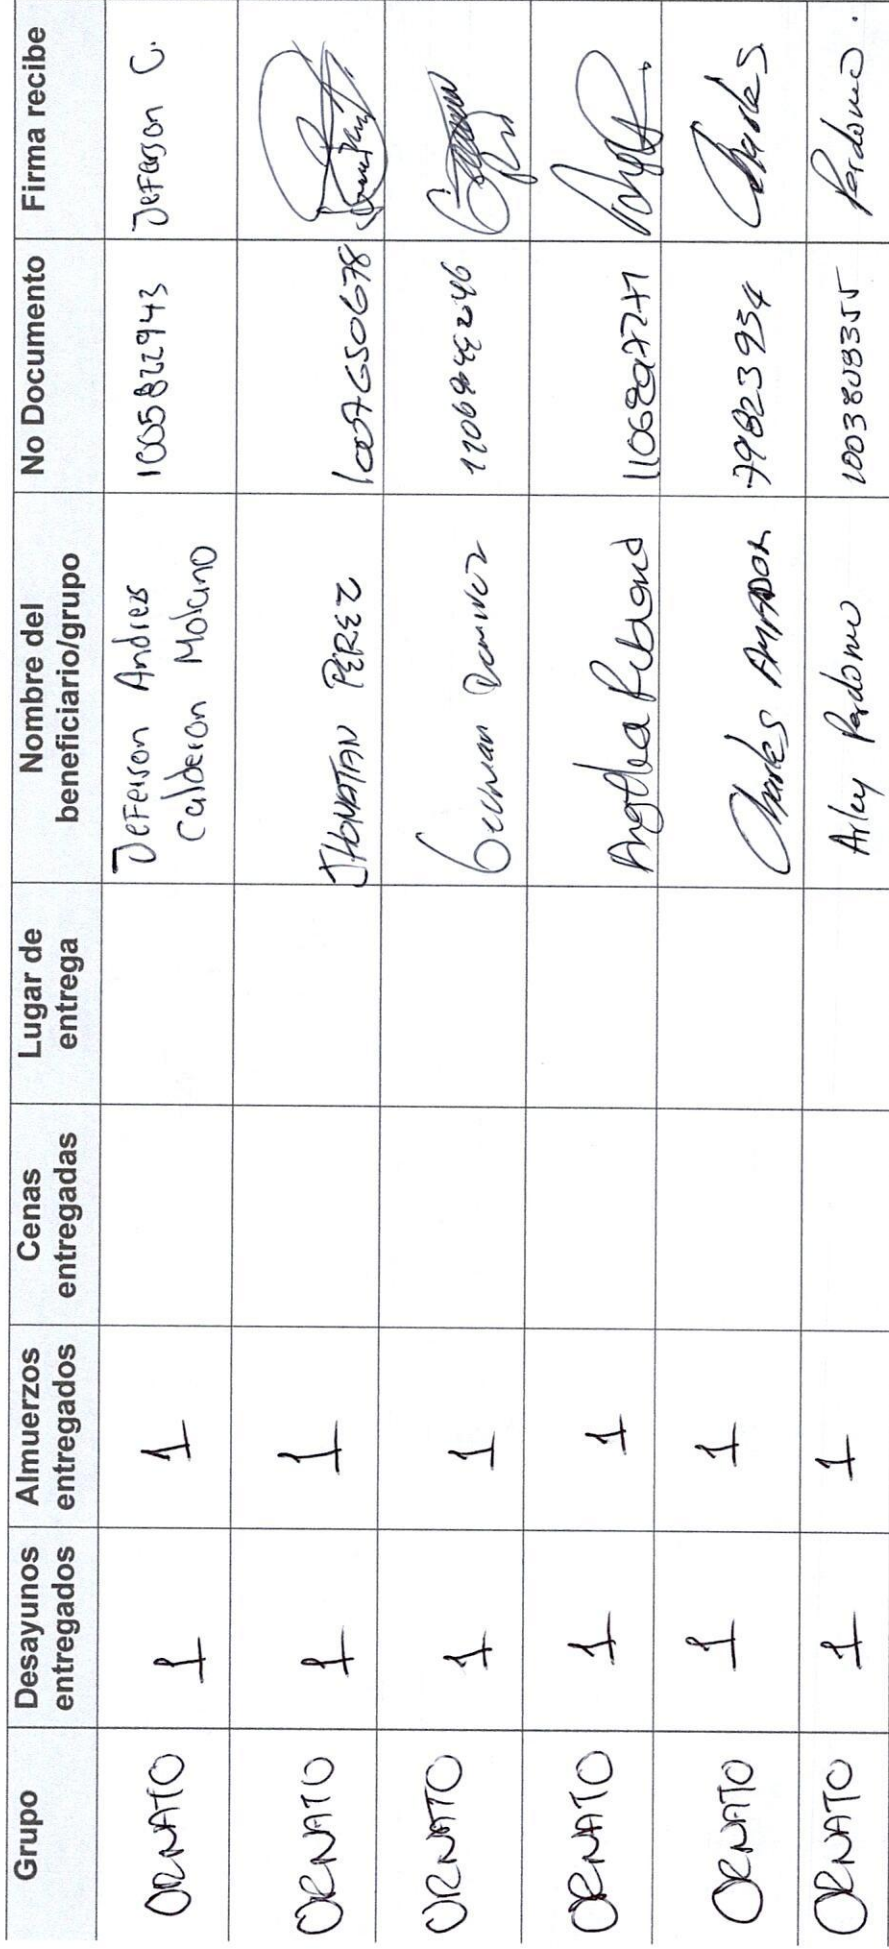 Grupo Desayunos entregados Almuerzos entregados Cenas entregadas Lugar de entrega Nombre del beneficiario/grupo No Documento Firma recibe
ORNATO 1 1 Jeferson Andres Calderon Molano 1005822943 Jeferson C.
ORNATO 1 1 JHONATAN PEREZ 1007650678
ORNATO 1 1 German Ramirez
ORNATO 1 1
ORNATO 1 1 Charles AMADOR 79823954 Charles
ORNATO 1 1 Arley Perdomo 1003808355 Perdomo.